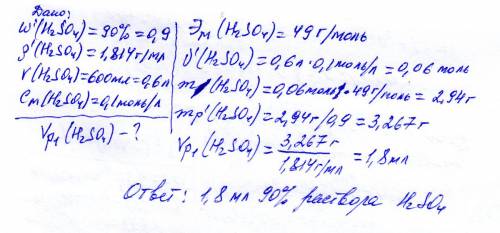 Дано:
ω'(H₂SO₄)=90%=0,9
ρ'(H₂SO₄)=1,814г/мл
V(H₂SO₄)=600мл=0,6л
Cм(H₂SO₄)=0,1моль/л
Vр₁(H₂SO₄)-?
Эм(H₂SO₄)=49г/моль
ν'(H₂SO₄)=0,6л·0,1моль/л=0,06 моль
m'(H₂SO₄)=0,06моль·49г/моль=2,94г
mр'(H₂SO₄)=2,94г/0,9=3,267г
Vр₁(H₂SO₄)=3,267г/1,814г/мл=1,8мл
Ответ: 1,8мл 90% раствора H₂SO₄